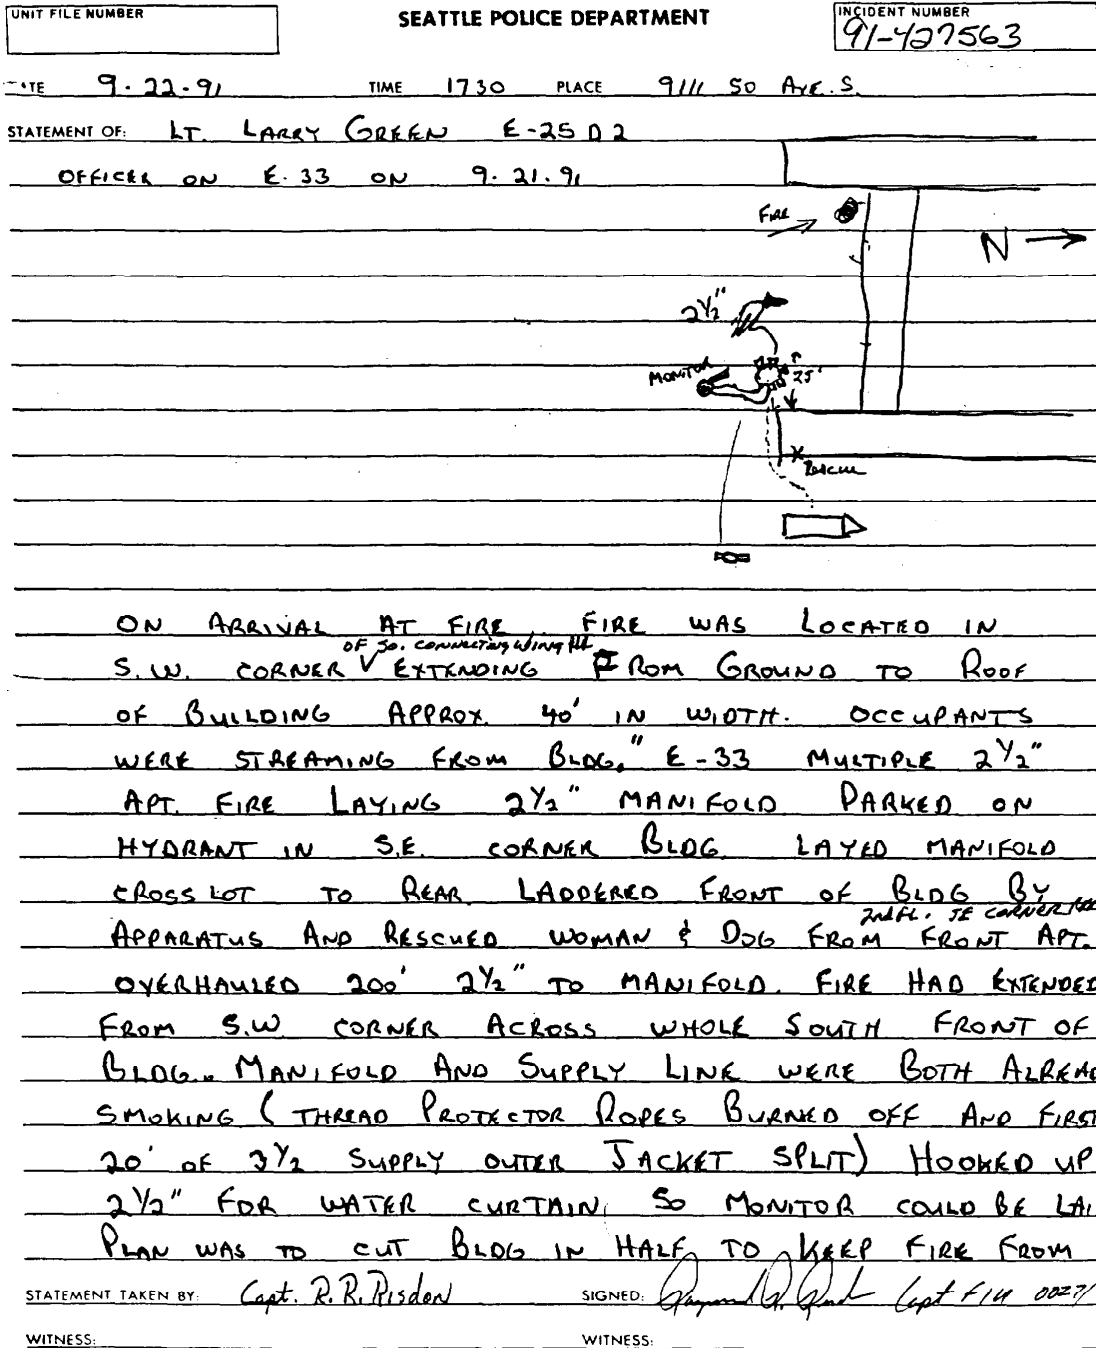 UNIT FILE NUMBER
SEATTLE POLICE DEPARTMENT
INCIDENT NUMBER
91-427563
TIME 1730 PLACE 9111 50 AVE. S.
9.22.91
STATEMENT OF: LT. LARRY GREEN E-25 D2
OFFICER ON E.33 ON 9.21.91
FIRE
N
2½"
MONITOR
25'
RESCUE
ON ARRIVAL AT FIRE FIRE WAS LOCATED IN
OF SO. CONNECTING WING
S.W. CORNER V EXTENDING FROM GROUND TO ROOF
OF BUILDING APPROX. 40' IN WIDTH. OCCUPANTS
WERE STREAMING FROM BLDG." E-33 MULTIPLE 2½"
APT. FIRE LAYING 2½" MANIFOLD PARKED ON
HYDRANT IN S.E. CORNER BLDG. LAYED MANIFOLD
CROSS LOT TO REAR LADDERED FRONT OF BLDG BY
2nd FL. SE CORNER
APPARATUS AND RESCUED WOMAN & DOG FROM FRONT APT.
OVERHAULED 200' 2½" TO MANIFOLD. FIRE HAD EXTENDED
FROM S.W. CORNER ACROSS WHOLE SOUTH FRONT OF
BLDG. MANIFOLD AND SUPPLY LINE WERE BOTH ALREAD
SMOKING (THREAD PROTECTOR ROPES BURNED OFF AND FIRST
20' OF 3½ SUPPLY OUTER JACKET SPLIT) HOOKED UP
2½" FOR WATER CURTAIN, SO MONITOR COULD BE LAI
PLAN WAS TO CUT BLDG IN HALF TO KEEP FIRE FROM
STATEMENT TAKEN BY: Capt. R.R. Risdon SIGNED: Capt
WITNESS: WITNESS: